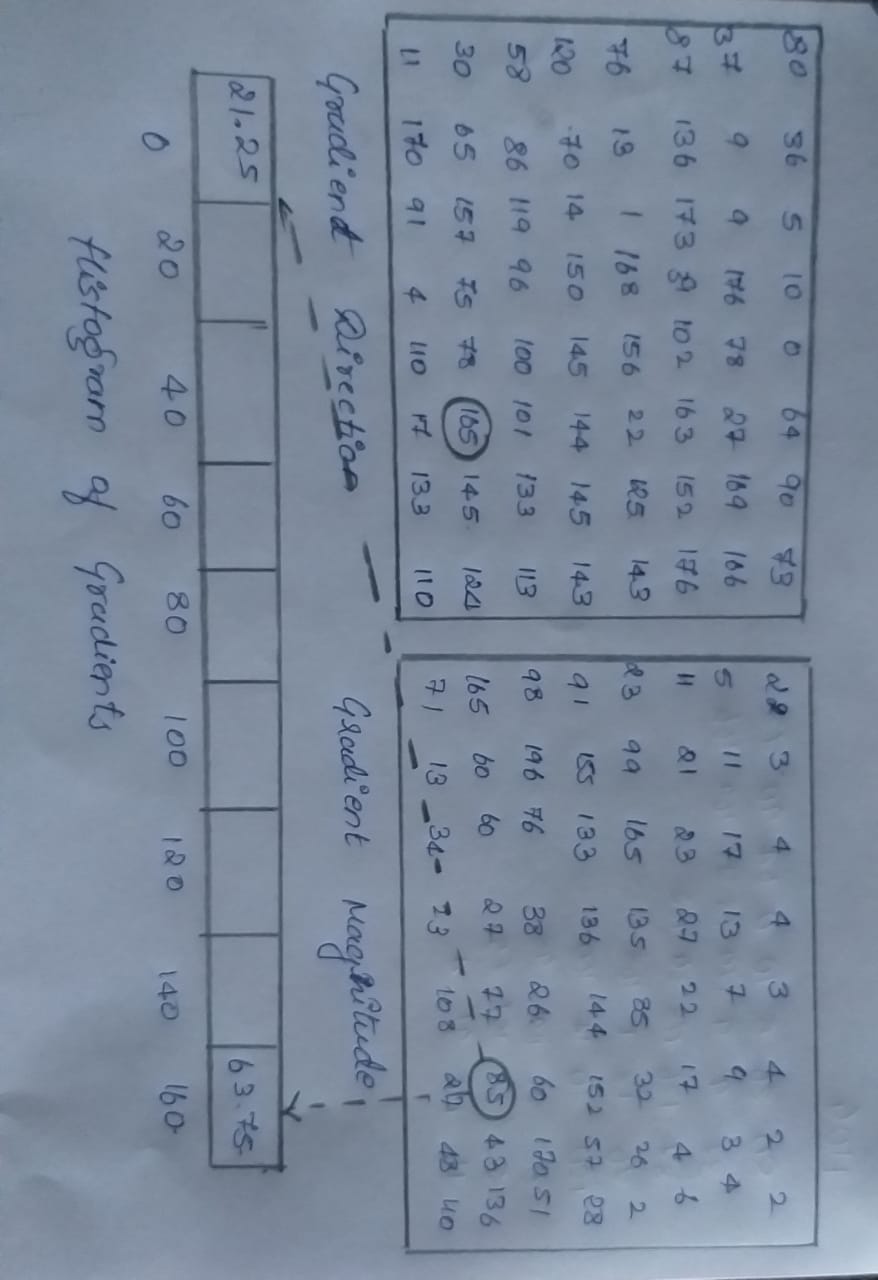 80 36 5 10 0 64 90 73
37 9 9 176 78 27 169 166
87 136 173 39 102 163 152 176
76 13 1 168 156 22 125 143
120 70 14 150 145 144 145 143
58 86 119 96 100 101 133 113
30 65 157 75 78 165 145 124
11 170 91 4 110 17 133 110
Gradient Direction
22 3 4 4 3 4 2 2
5 11 17 13 7 9 3 4
11 21 23 27 22 17 4 6
23 99 165 135 85 32 26 2
91 155 133 136 144 152 57 28
98 196 76 38 26 60 170 51
165 60 60 27 77 85 43 136
71 13 34 23 108 27 48 40
Gradient Magnitude
21.25 63.75
0 20 40 60 80 100 120 140 160
Histogram of Gradients